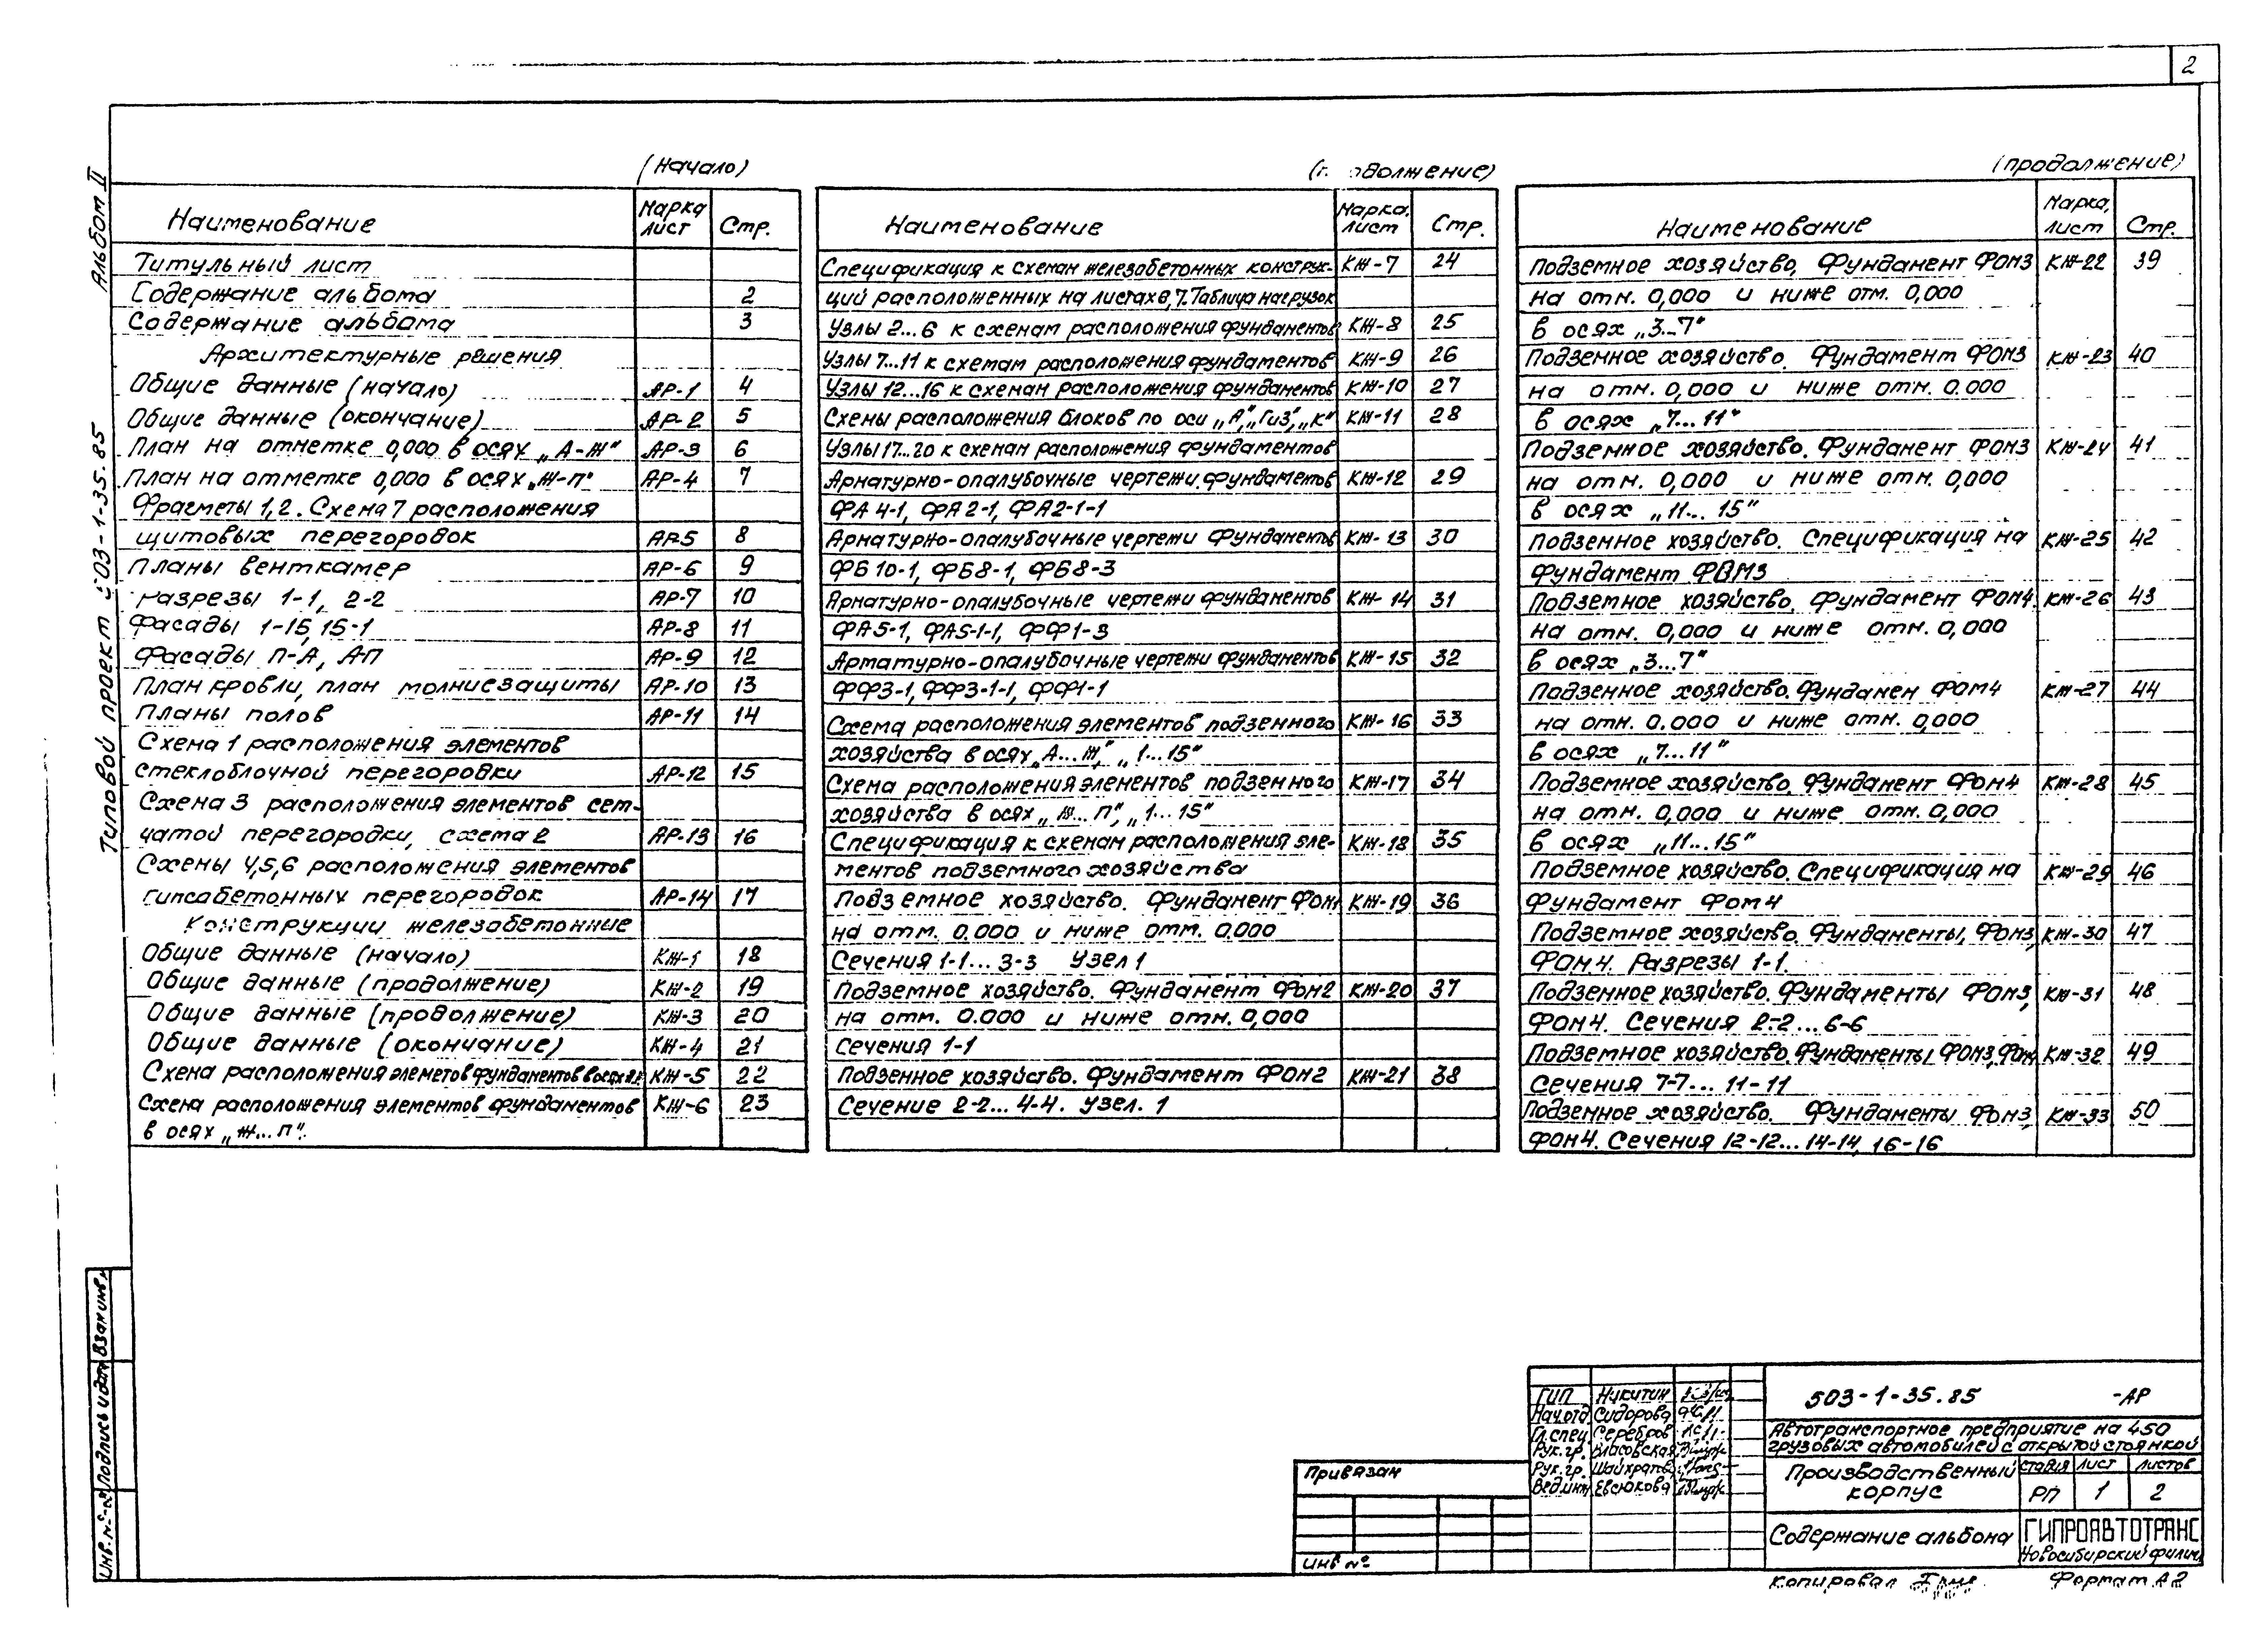 2
Альбом II
Типовой проект 503-1-35.85
(начало)
Наименование Марка лист Стр.
Титульный лист
Содержание альбома 2
Содержание альбома 3
Архитектурные решения
Общие данные (начало) АР-1 4
Общие данные (окончание) АР-2 5
План на отметке 0,000 в осях „А-Ж" АР-3 6
План на отметке 0,000 в осях „Ж-П" АР-4 7
Фрагметы 1,2. Схема 7 расположения
щитовых перегородок АР-5 8
Планы венткамер АР-6 9
Разрезы 1-1, 2-2 АР-7 10
Фасады 1-15, 15-1 АР-8 11
Фасады П-А, А-П АР-9 12
План кровли, план молниезащиты АР-10 13
Планы полов АР-11 14
Схема 1 расположения элементов
стеклоблочной перегородки АР-12 15
Схема 3 расположения элементов сет-
чатой перегородки, схема 2 АР-13 16
Схемы 4,5,6 расположения элементов
гипсабетонных перегородок АР-14 17
Конструкции железобетонные
Общие данные (начало) КЖ-1 18
Общие данные (продолжение) КЖ-2 19
Общие данные (продолжение) КЖ-3 20
Общие данные (окончание) КЖ-4 21
Схема расположения элеметов фундаментов в осях КЖ-5 22
Схема расположения элементов фундаментов КЖ-6 23
в осях „Ж...П".
(продолжение)
Наименование Марка, лист Стр.
Спецификация к схемам железобетонных конструк- КЖ-7 24
ций расположенных на листах 6,7. Таблица нагрузок
Узлы 2...6 к схемам расположения фундаментов КЖ-8 25
Узлы 7...11 к схемам расположения фундаментов КЖ-9 26
Узлы 12...16 к схемам расположения фундаментов КЖ-10 27
Схемы расположения блоков по оси „А", „Г и З", „К" КЖ-11 28
Узлы 17...20 к схемам расположения фундаментов
Арматурно-опалубочные чертежи фундаментов КЖ-12 29
ФА 4-1, ФА 2-1, ФА2-1-1
Арматурно-опалубочные чертежи фундаментов КЖ-13 30
ФБ 10-1, ФБ8-1, ФБ8-3
Арматурно-опалубочные чертежи фундаментов КЖ-14 31
ФА5-1, ФА5-1-1, ФФ1-3
Арматурно-опалубочные чертежи фундаментов КЖ-15 32
ФФ3-1, ФФ3-1-1, ФФ1-1
Схема расположения элементов подземного КЖ-16 33
хозяйства в осях „А...Ж", „1...15"
Схема расположения элементов подземного КЖ-17 34
хозяйства в осях „Ж...П", „1...15"
Спецификация к схемам расположения эле- КЖ-18 35
ментов подземного хозяйства
Подземное хозяйство. Фундамент Фом1 КЖ-19 36
на отм. 0.000 и ниже отм. 0.000
Сечения 1-1... 3-3 Узел 1
Подземное хозяйство. Фундамент Фом2 КЖ-20 37
на отм. 0.000 и ниже отм. 0,000
Сечения 1-1
Подземное хозяйство. Фундамент Фом2 КЖ-21 38
Сечение 2-2... 4-4. Узел. 1
(продолжение)
Наименование Марка, лист Стр.
Подземное хозяйство, Фундамент Фом3 КЖ-22 39
на отм. 0,000 и ниже отм. 0,000
в осях „3...7"
Подземное хозяйство. Фундамент Фом3 КЖ-23 40
на отм. 0,000 и ниже отм. 0.000
в осях „7...11"
Подземное хозяйство. Фундамент Фом3 КЖ-24 41
на отм. 0,000 и ниже отм. 0,000
в осях „11... 15"
Подземное хозяйство. Спецификация на КЖ-25 42
фундамент ФОМ3
Подземное хозяйство. Фундамент Фом4 КЖ-26 43
на отм. 0,000 и ниже отм. 0,000
в осях „3...7"
Подземное хозяйство. Фундамен Фом4 КЖ-27 44
на отм. 0.000 и ниже отм. 0,000
в осях „7...11"
Подземное хозяйство. Фундамент Фом4 КЖ-28 45
на отм. 0,000 и ниже отм. 0,000
в осях „11...15"
Подземное хозяйство. Спецификация на КЖ-29 46
фундамент Фом4
Подземное хозяйство. Фундаменты, Фом3, КЖ-30 47
Фом4. Разрезы 1-1.
Подземное хозяйство. Фундаменты Фом3, КЖ-31 48
Фом4. Сечения 2-2... 6-6
Подземное хозяйство. Фундаменты Фом3, Фом КЖ-32 49
Сечения 7-7... 11-11
Подземное хозяйство. Фундаменты Фом3, КЖ-33 50
Фом4. Сечения 12-12... 14-14, 16-16
Взам инв.
Подпись и дата
Инв. № подл
Привязан
Инв №
ГИП Никитин
Нач.отд Сидорова
Гл.спец Серебров
Рук.гр. Власовская
Рук.гр.
Вед.инж Евсюкова
503-1-35.85 -АР
Автотранспортное предприятие на 450
грузовых автомобилей с открытой стоянкой
Производственный корпус
стадия лист листов
РП 1 2
Содержание альбома
ГИПРОАВТОТРАНС
Новосибирский филиал
Копировал
Формат А2